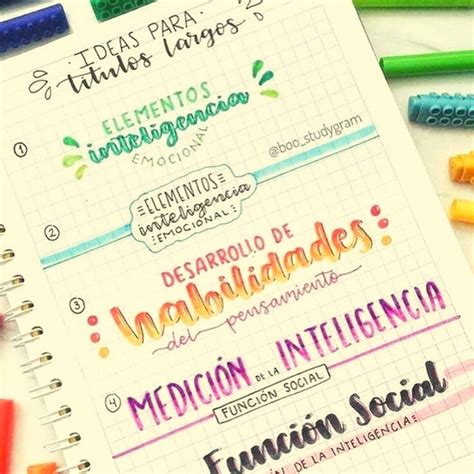 IDEAS PARA
títulos largos
1
ELEMENTOS
inteligencia
EMOCIONAL
@boo_studygram
2
ELEMENTOS
inteligencia
EMOCIONAL
3
DESARROLLO DE
habilidades
del pensamiento
4
MEDICIÓN DE LA INTELIGENCIA
FUNCIÓN SOCIAL
Función Social
DE LA INTELIGENCIA